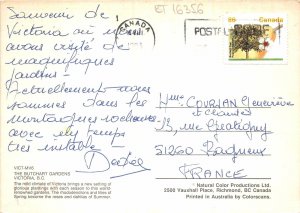 ET 16256
Souvenir de
Victoria où nous
avons visité de
magnifiques
jardins.
Actuellement nous
sommes dans les
montagnes rocheuses
avec un temps
très instable.
CANADA
POSTES
86 Canada
Mme COURJAN Geneviève
et Claude
13, rue
51260
FRANCE
VICT-M95
THE BUTCHART GARDENS
VICTORIA, B.C.
The mild climate of Victoria brings a new setting of
glorious plantings with each season to this world
renowned garden. The masses of Tulips and Iris of
Spring become the roses and dahlias of Summer.
Natural Color Productions Ltd.
2500 Vauxhall Place, Richmond, BC Canada
Printed in Australia by Colorscans.